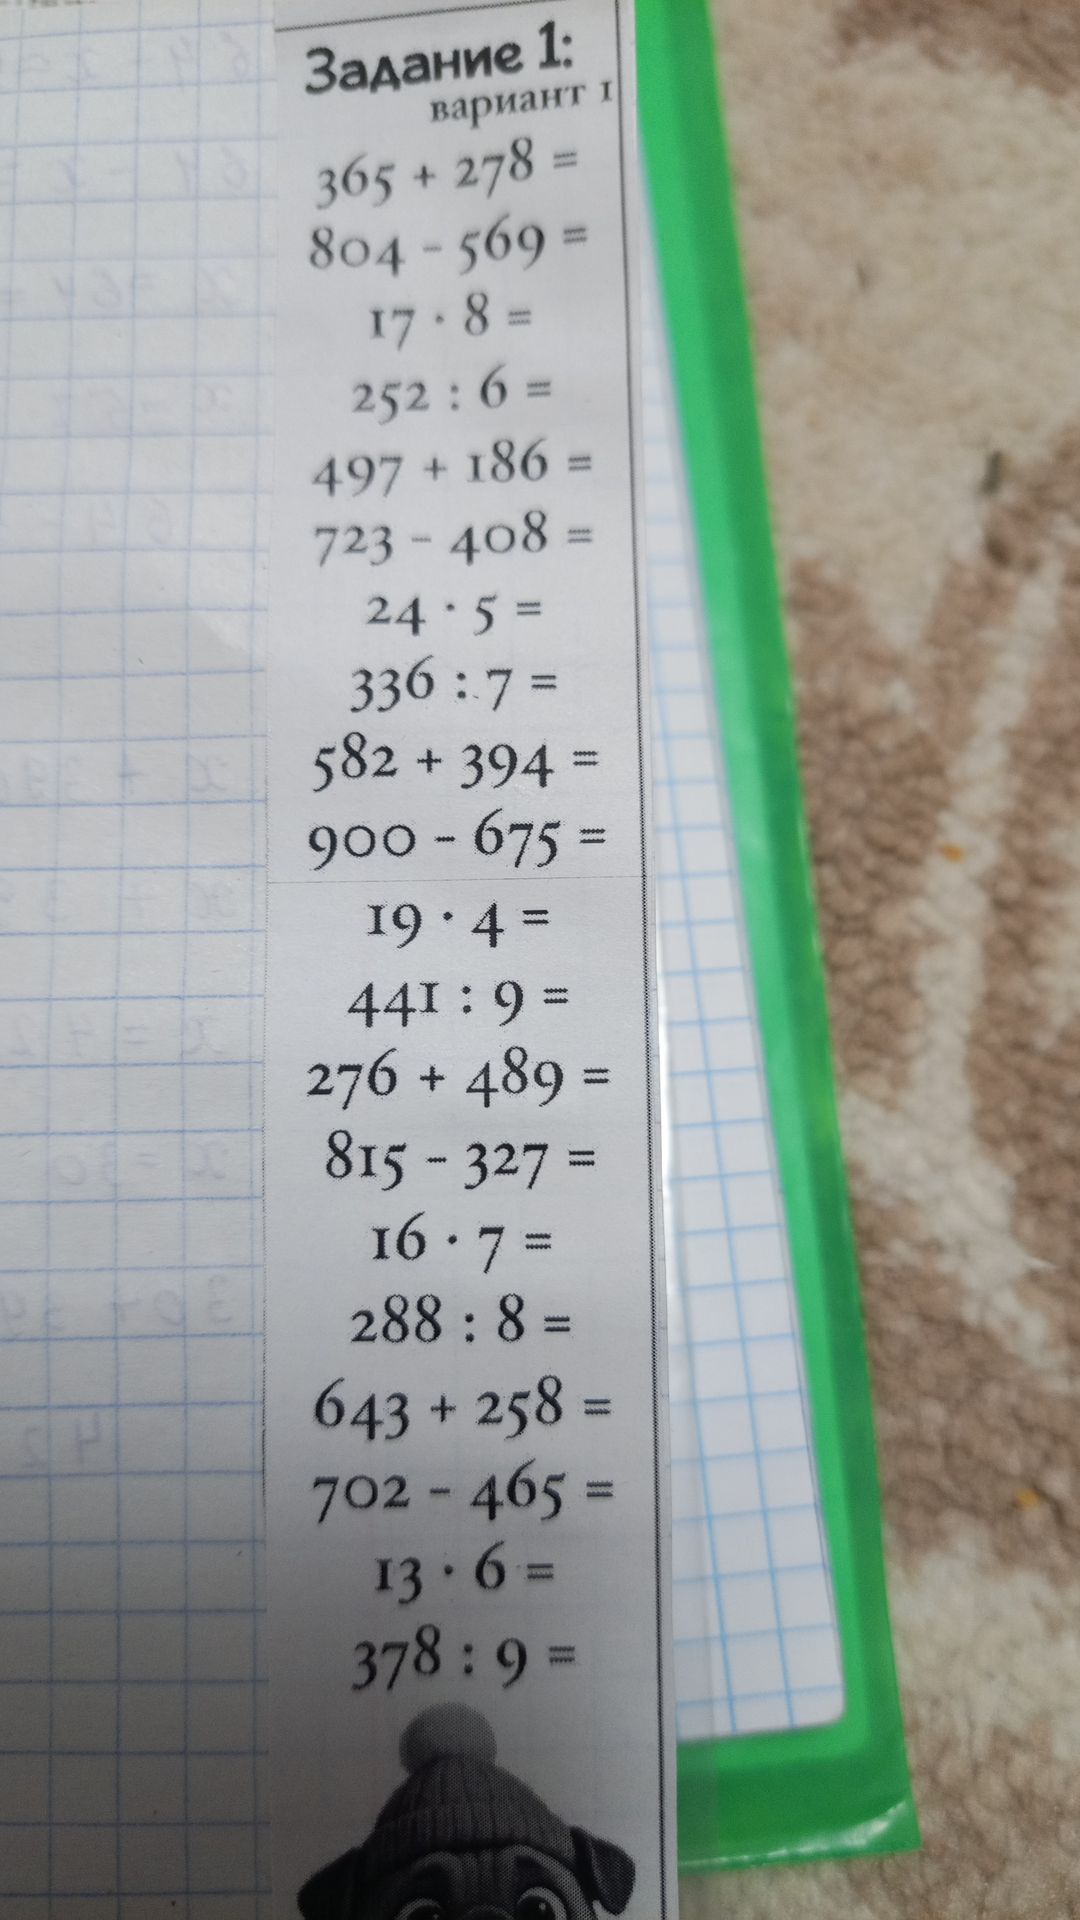 Задание 1:
вариант 1
365 + 278 =
804 - 569 =
17 · 8 =
252 : 6 =
497 + 186 =
723 - 408 =
24 · 5 =
336 : 7 =
582 + 394 =
900 - 675 =
19 · 4 =
441 : 9 =
276 + 489 =
815 - 327 =
16 · 7 =
288 : 8 =
643 + 258 =
702 - 465 =
13 · 6 =
378 : 9 =